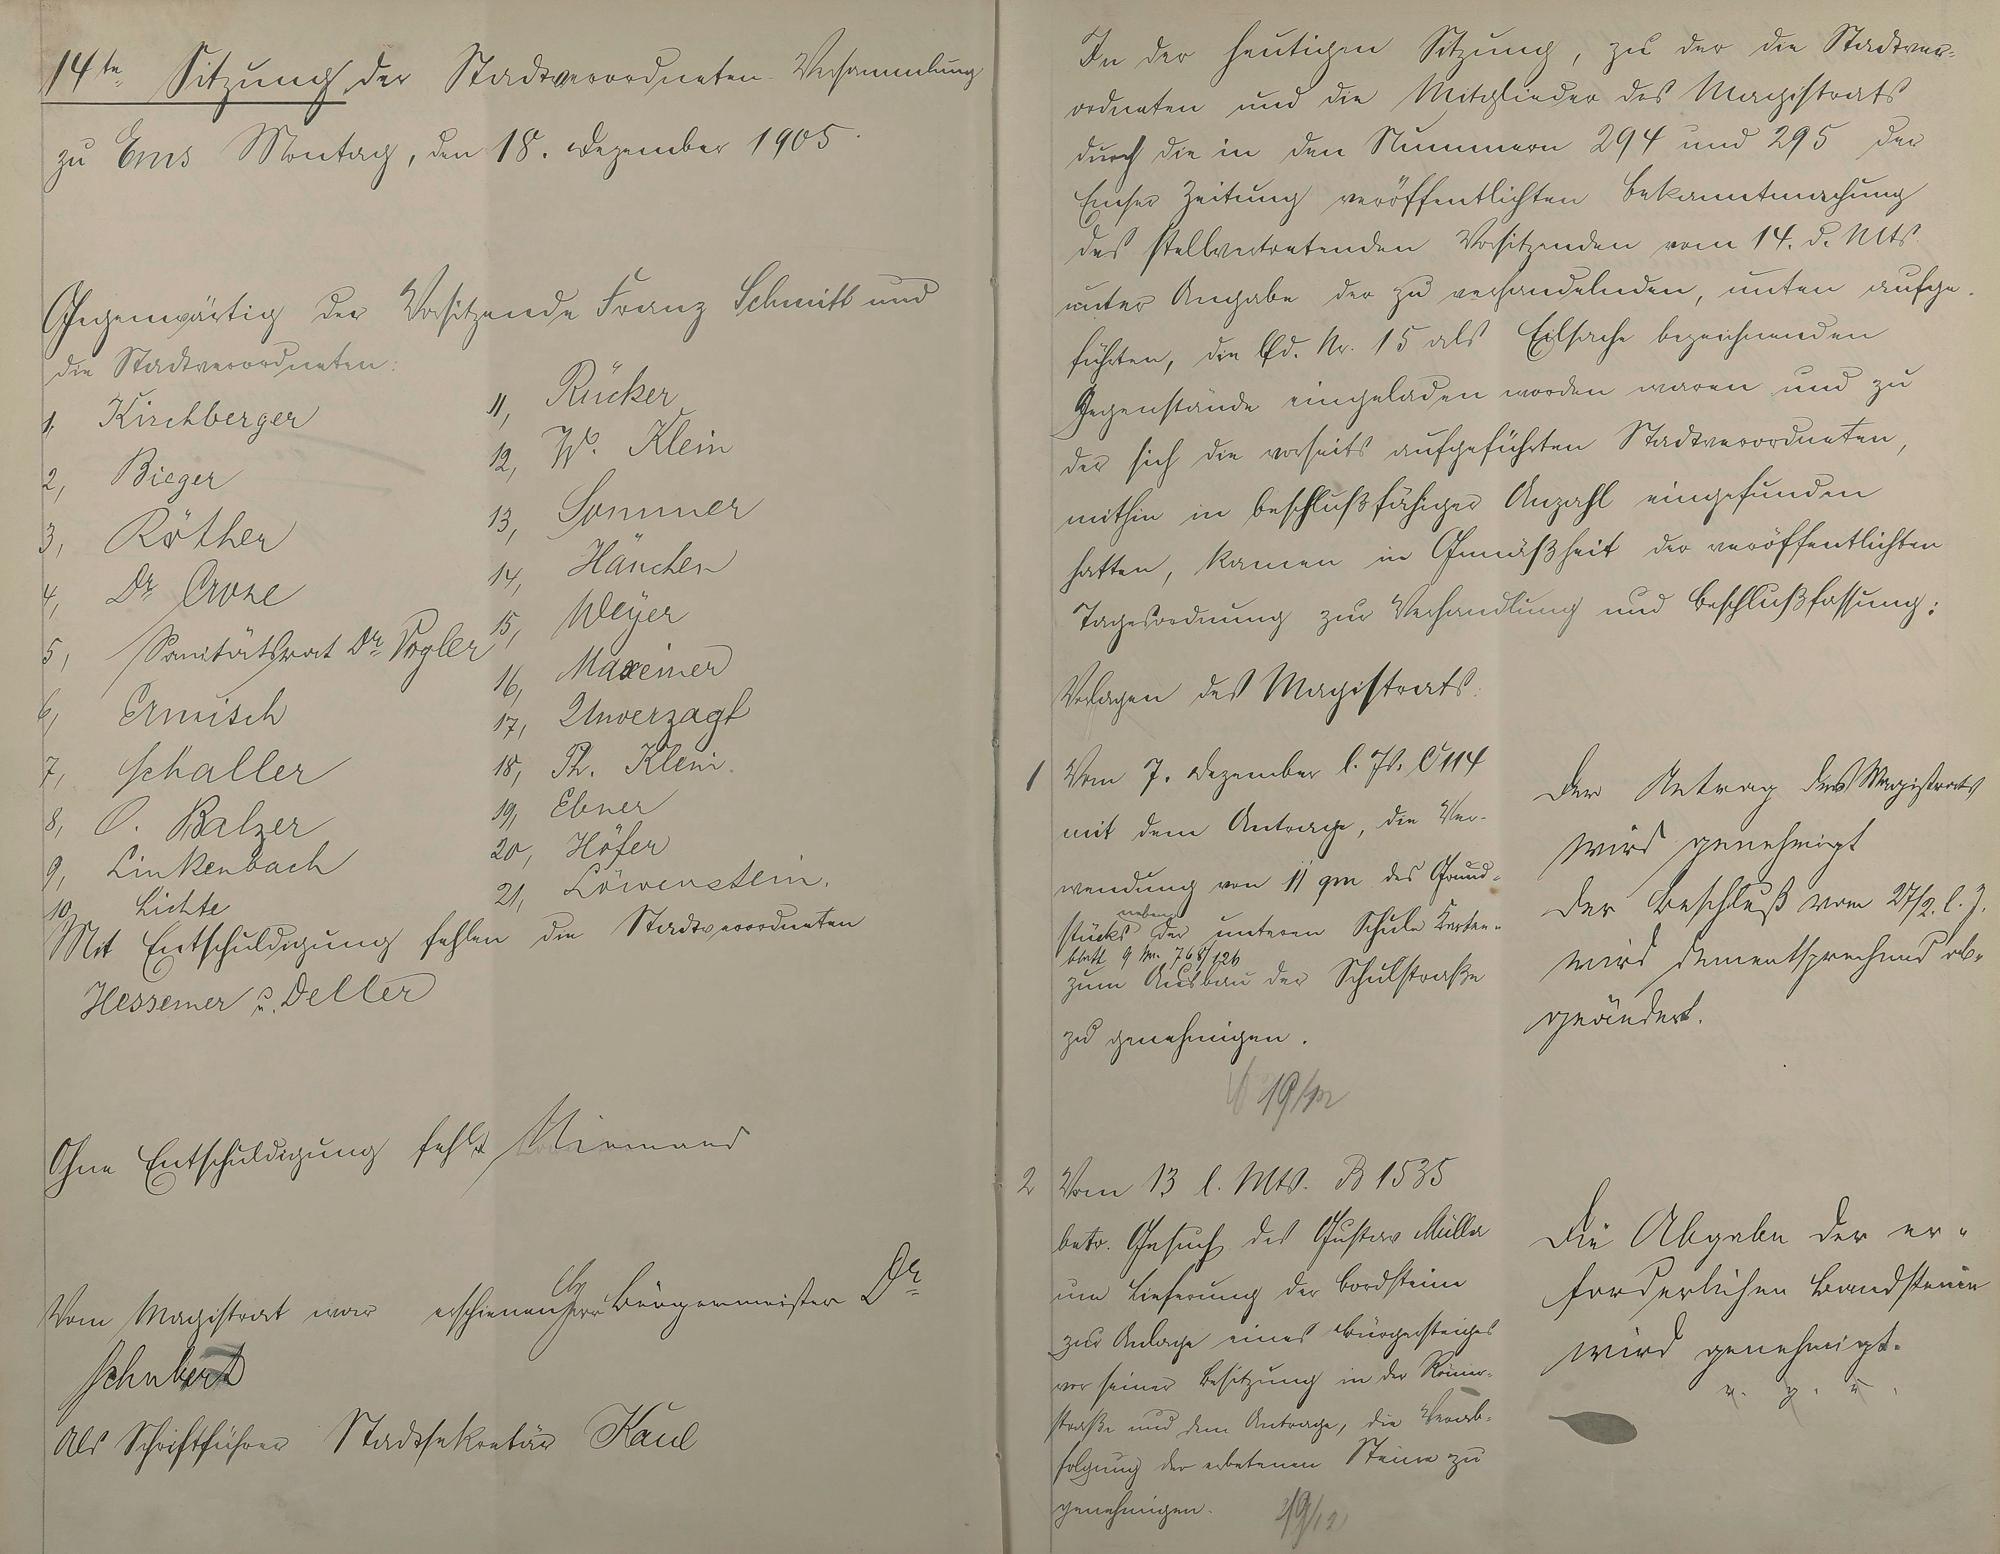 14te Sitzung der Stadtverordneten-Versammlung
zu Ems Montag, den 18. Dezember 1905.
Gegenwärtig der Vorsitzende Franz Schmitt und
die Stadtverordneten:
1, Kirchberger
2, Bieger
3, Röther
4, Dr
5, Sanitätsrat Dr. Vogler
6, Ermisch
7, Schaller
8, O. Balzer
9, Linkenbach
10, Lichte
11, Rücker
12, W. Klein
13, Sommer
14, Hänchen
15, Weyer
16, Maxeiner
17, Unverzagt
18, Ph. Klein.
19, Ebner
20, Höfer
21, Löwenstein.
Mit Entschuldigung fehlen die Stadtverordneten
Hessemer u. Deller
Ohne Entschuldigung fehlt Niemand
Vom Magistrat war erschienen Herr Bürgermeister Dr.
Schubert
Als Schriftführer Stadtsekretär Kaul
In der heutigen Sitzung, zu der die Stadtver-
ordneten und die Mitglieder des Magistrats
durch die in den Nummern 294 und 295 der
Emser Zeitung veröffentlichten Bekanntmachung
des stellvertretenden Vorsitzenden vom 14. d. Mts.
unter Angabe der zu verhandelnden, unten aufge-
führten, die Lfd. Nr. 15 als Eilsache bezeichnenden
Gegenstände eingeladen worden waren und zu
der sich die vorseits aufgeführten Stadtverordneten,
mithin in beschlußfähiger Anzahl eingefunden
hatten, kamen in Gemäßheit der veröffentlichten
Tagesordnung zur Verhandlung und Beschlußfassung:
Vorlagen des Magistrats.
1 Vom 7. Dezember l. Js. C 114
mit dem Antrage, die Ver-
wendung von 11 qm des Grund-
stücks neben der unteren Schule Karten-
blatt 9 Nr. 768/126
zum Ausbau der Schulstraße
zu genehmigen.
19/12
Der Antrag des Magistrats
wird genehmigt
Der Beschluß vom 27/2. l. J.
wird dementsprechend ab-
geändert.
2 Vom 13 l. Mts. B 1535
betr. Gesuch des Gustav Müller
um Lieferung der Bordsteine
zur Anlage eines Bürgersteiges
vor seiner Besitzung in der Römer-
straße und dem Antrage, die Verab-
folgung der erbetenen Steine zu
genehmigen.
19/12
Die Abgabe der er-
forderlichen Bandsteine
wird genehmigt.
v. g. u.